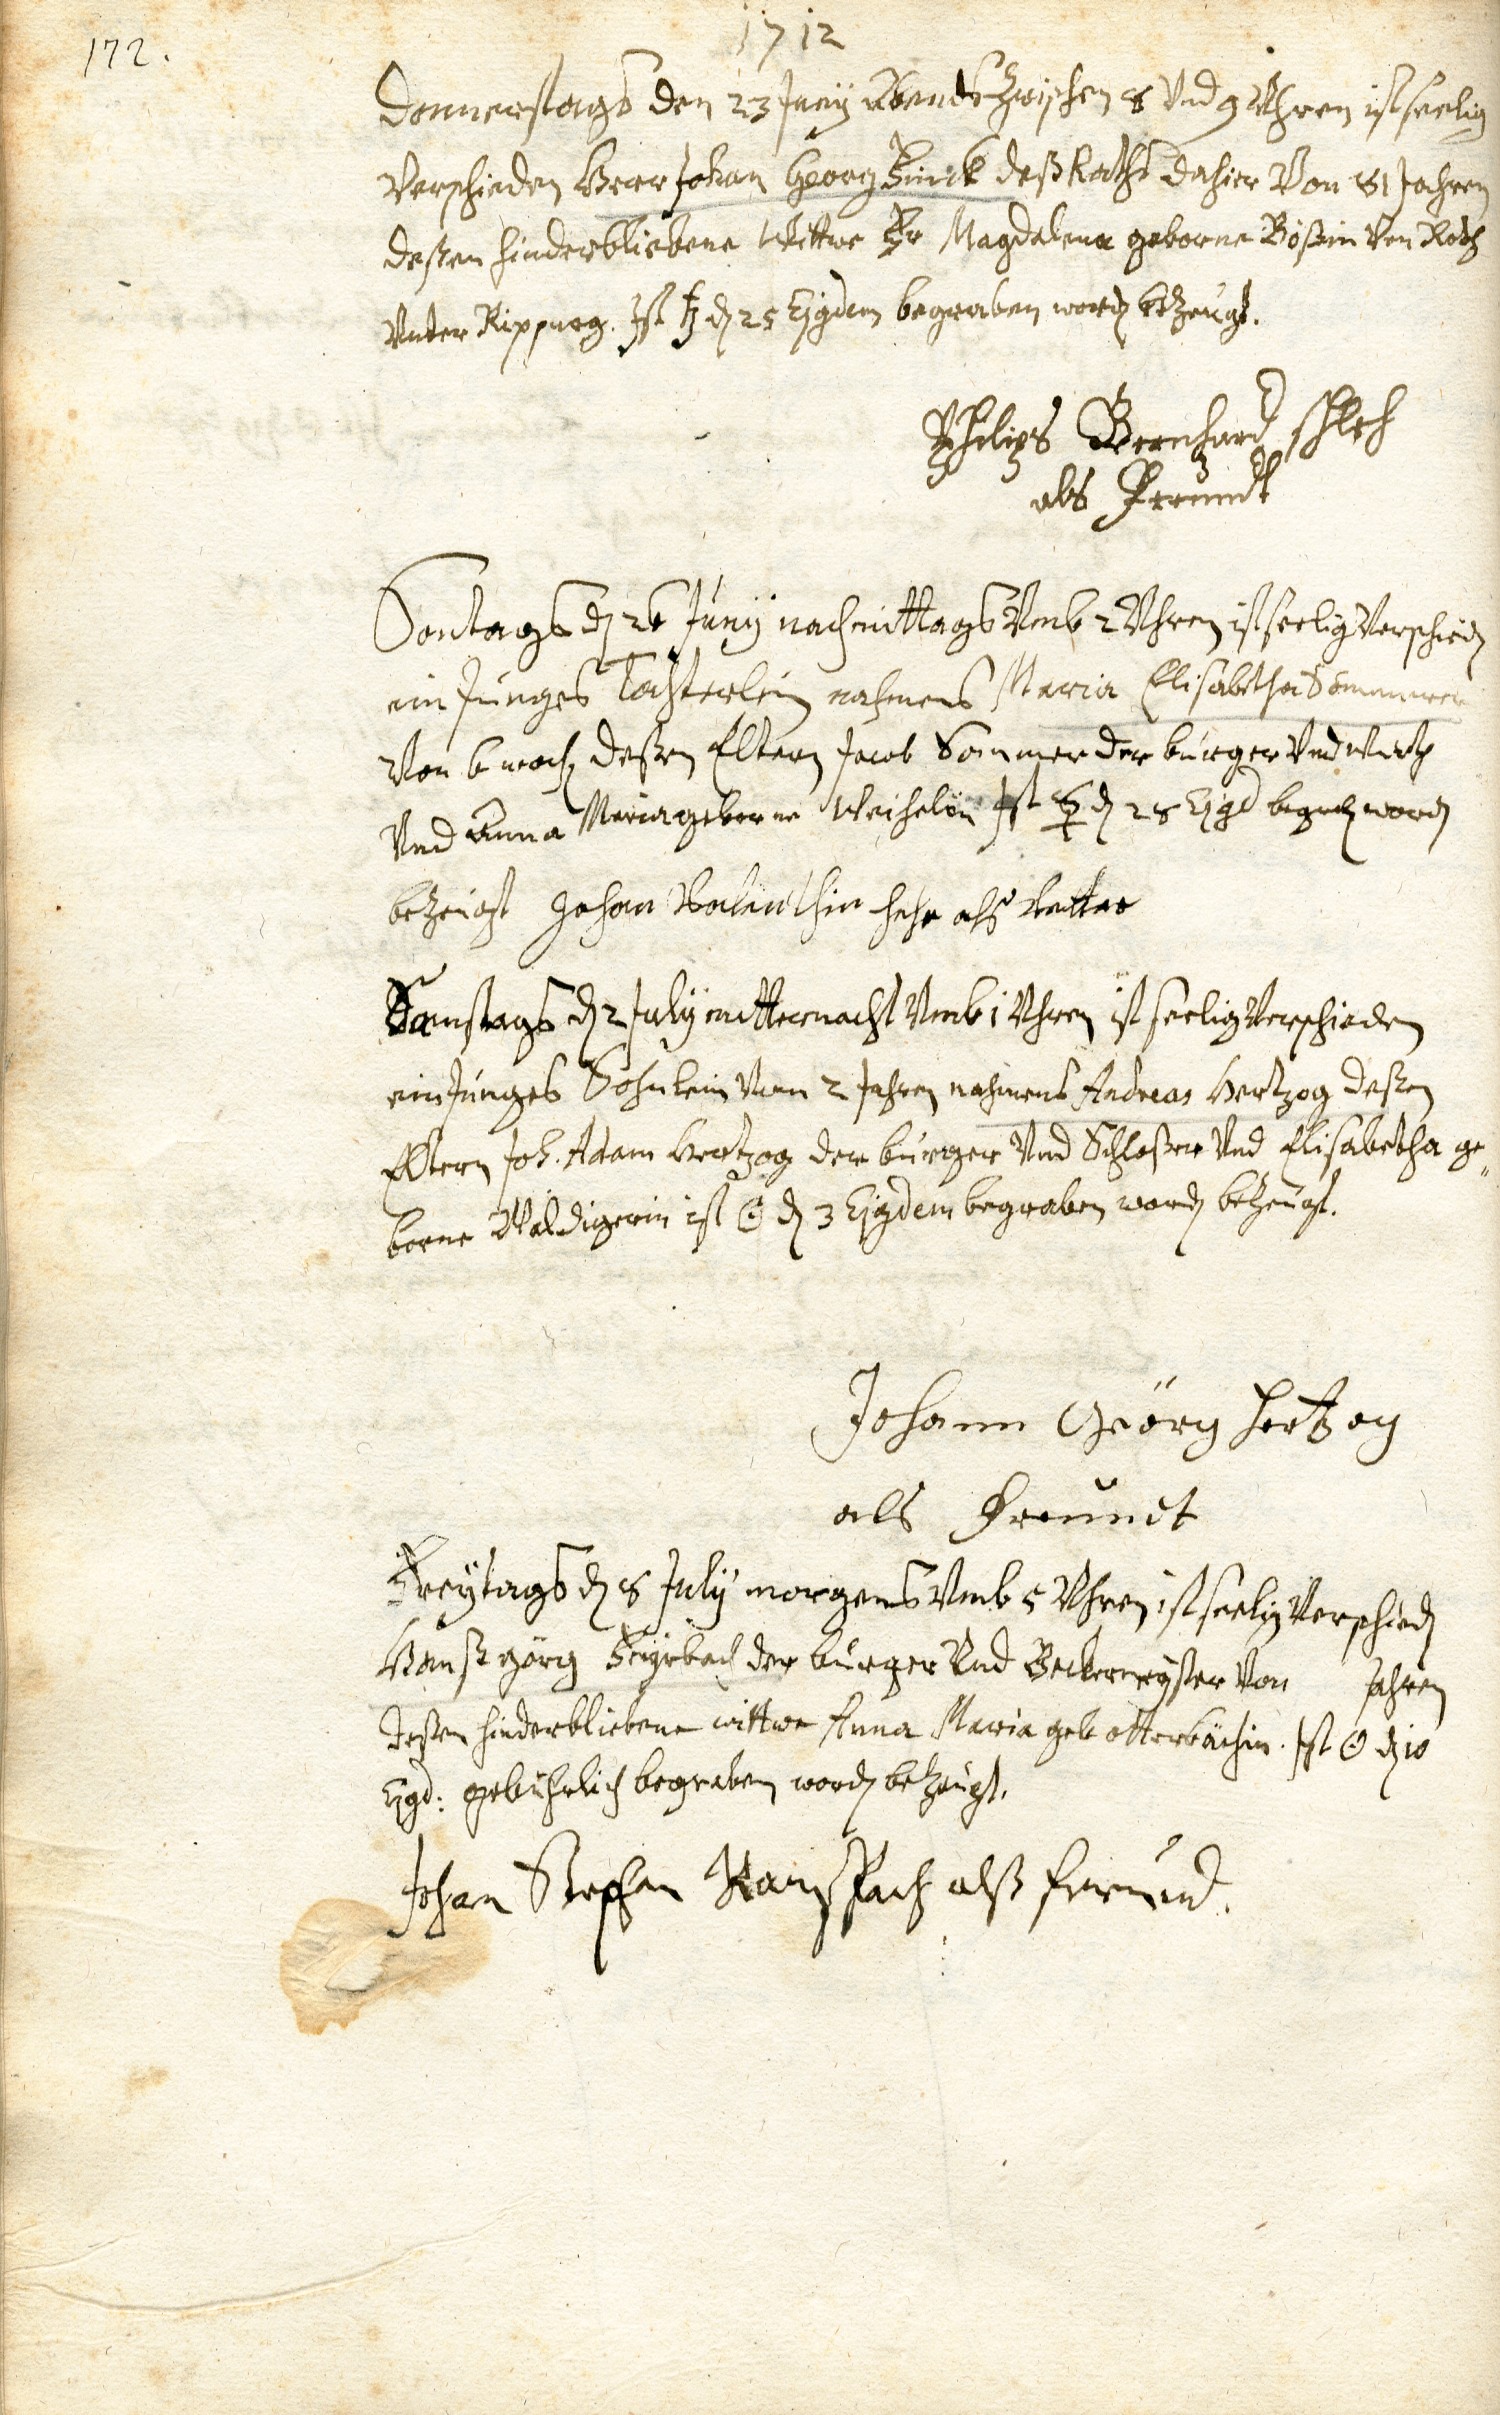 1712
172.
Donnerstags den 23 Juny Abents Zwischen 8 Und 9 Uhren ist seelig
Verschieden Herr Johan Georg Zinck deß Raths dahier Von 81 Jahren
deßen hinderbliebene Wittwe Fr Magdalena geborne Bößin Von Roth
Unter Rippurg. Ist ♄ d 25 Ejgdem begraben word bezeugt.
Philips Bernhard Schleh
als Freundt
Sontags d 26 Juny nachmittags Umb 2 Uhren ist seelig Verschied
ein Junges Tochterlein nahmens Maria Elisabetha Sommerer
Von 6 woch deßen Eltern Jacob Sommer der burger Und
Und Anna Maria geborne Weihelin Ist d 28 Ejgd begr word
bezeugt Johan Valenthin hehr als Vetter
Samstags d 2 July mitternacht Umb 1 Uhren ist seelig Verschieden
ein Junges Sohnlein Von 2 Jahren nahmens Andreas Hertzog deßen
Eltern Joh. Adam Hertzog der burger Und Schloßer Und Elisabetha ge„
borne Waldigerin ist ☉ d 3 Ejgdem begraben word bezeugt.
Johann Geörg Hertzog
als Freundt
Freytags d 8 July morgens Umb 5 Uhren ist seelig Verschied
Hanß Görg Feyrbach der burger Und Beckermeyster Von Jahren
deßen hinderbliebene wittwe Anna Maria geb otterbächin. Ist ☉ d 10
Ejgd: gebührlich begraben word bezeugt.
Johan Steffen Ranspach alß freund.